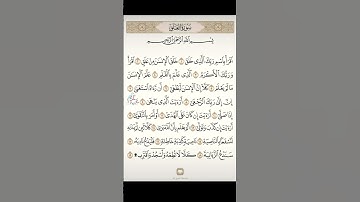 سورة العلق
بسم الله الرحمن الرحيم
اقرأ باسم ربك الذي خلق ۝ خلق الإنسن من علق ۝ اقرأ
وربك الأكرم ۝ الذي علم بالقلم ۝ علم الإنسن
ما لم يعلم ۝ كلا إن الإنسن ليطغى ۝ أن رءاه استغنى ۝
إن إلى ربك الرجعى ۝ أرءيت الذي ينهى ۝ عبدا
إذا صلى ۝ أرءيت إن كان على الهدى ۝ أو أمر بالتقوى ۝
أرءيت إن كذب وتولى ۝ ألم يعلم بأن الله يرى ۝ كلا لئن لم ينته
لنسفعا بالناصية ۝ ناصية كذبة خاطئة ۝ فليدع ناديه ۝
سندع الزبانية ۝ كلا لا تطعه واسجد واقترب ۩ ۝